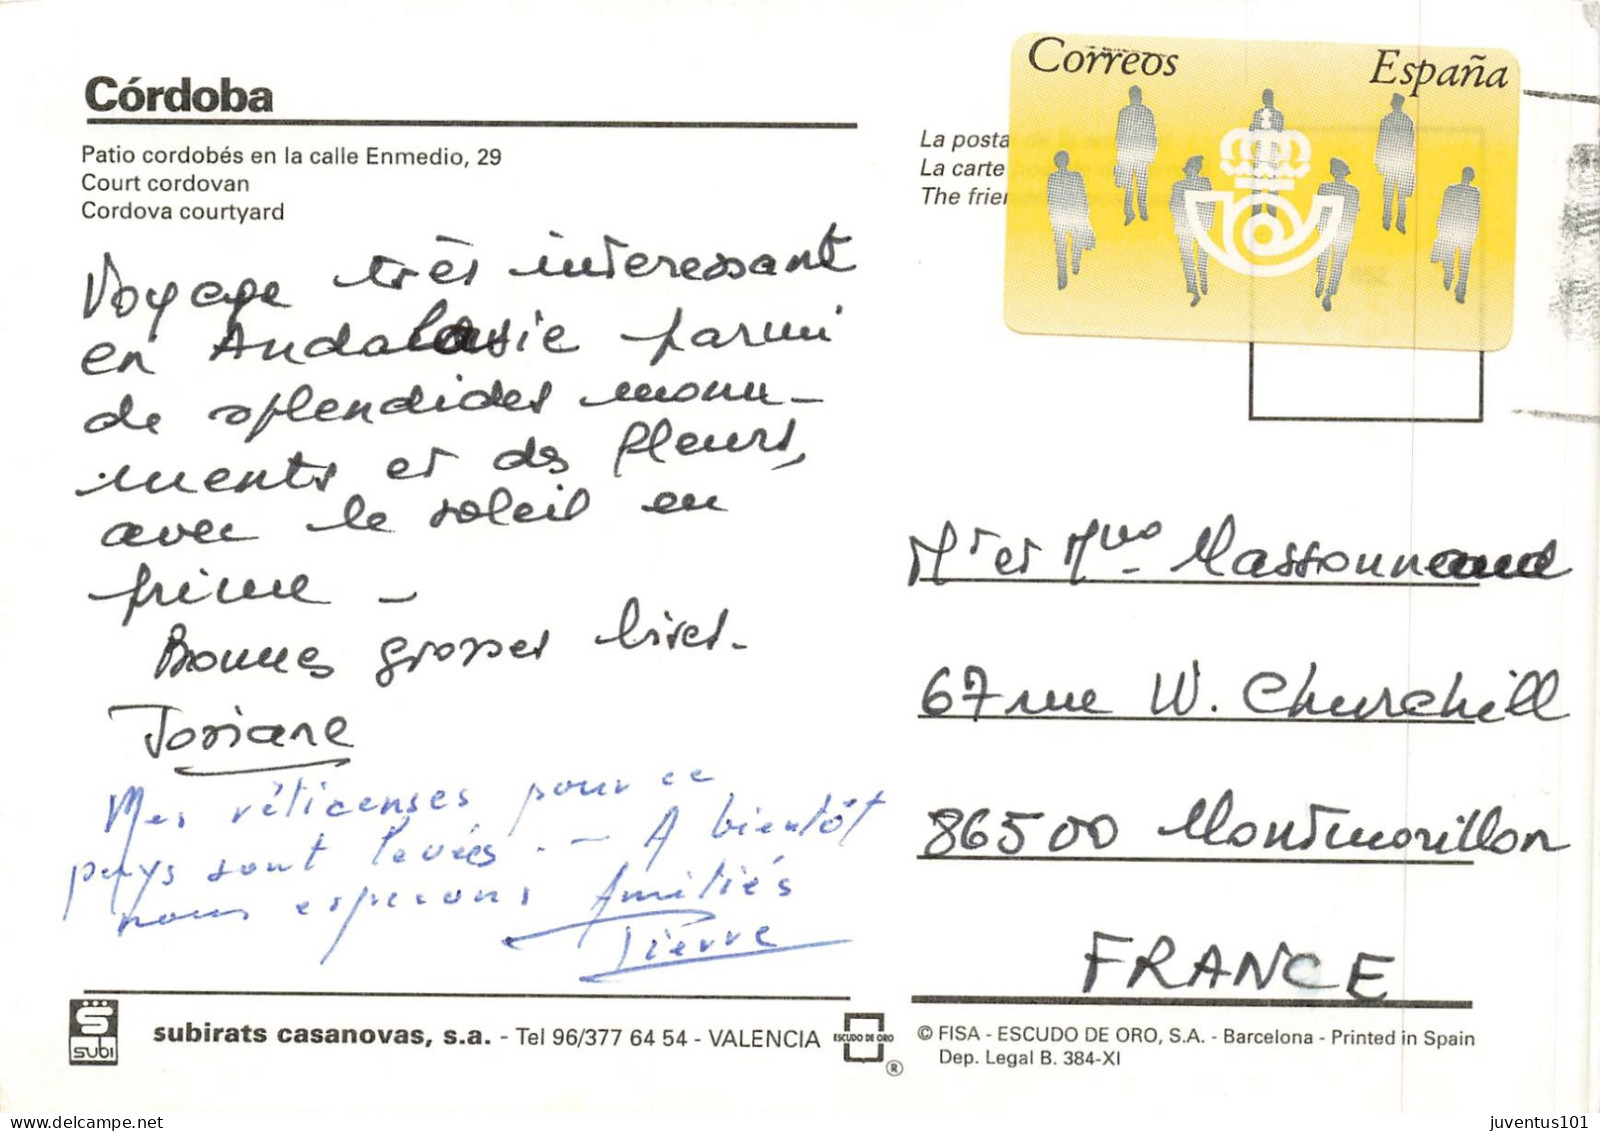 Córdoba
Patio cordobés en la calle Enmedio, 29
Court cordovan
Cordova courtyard
Voyage très interessant
en Andalousie parmi
de splendides monu-
ments et des fleurs,
avec le soleil en
prime -
Bonnes grosses bises.
Josiane
Mes réticenses pour ce
pays sont levées. - A bientôt
nous esperons Amitiés
Pierre
subirats casanovas, s.a. - Tel 96/377 64 54 - VALENCIA
subi
ESCUDO DE ORO
®
Correos España
La posta
La carte
The frien
Mr et Mme
67 rue W. Churchill
86500 Montmorillon
FRANCE
© FISA - ESCUDO DE ORO, S.A. - Barcelona - Printed in Spain
Dep. Legal B. 384-XI
juventus101